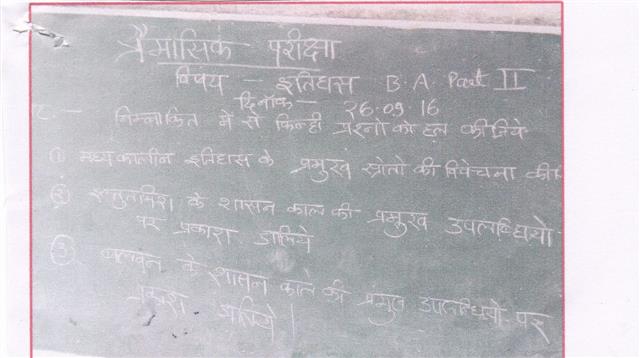 त्रैमासिक परीक्षा
विषय - इतिहास B.A. Part II
दिनाँक - 26.09.16
निम्नांकित में से किन्ही प्रश्नो को हल कीजिये
① मध्यकालीन इतिहास के प्रमुख स्रोतो की विवेचना की
② इल्तुतमिश के शासन काल की प्रमुख उपलब्धियो
पर प्रकाश डालिये
③ बलवन के शासन काल की प्रमुख उपलब्धियो पर
प्रकाश डालिये।